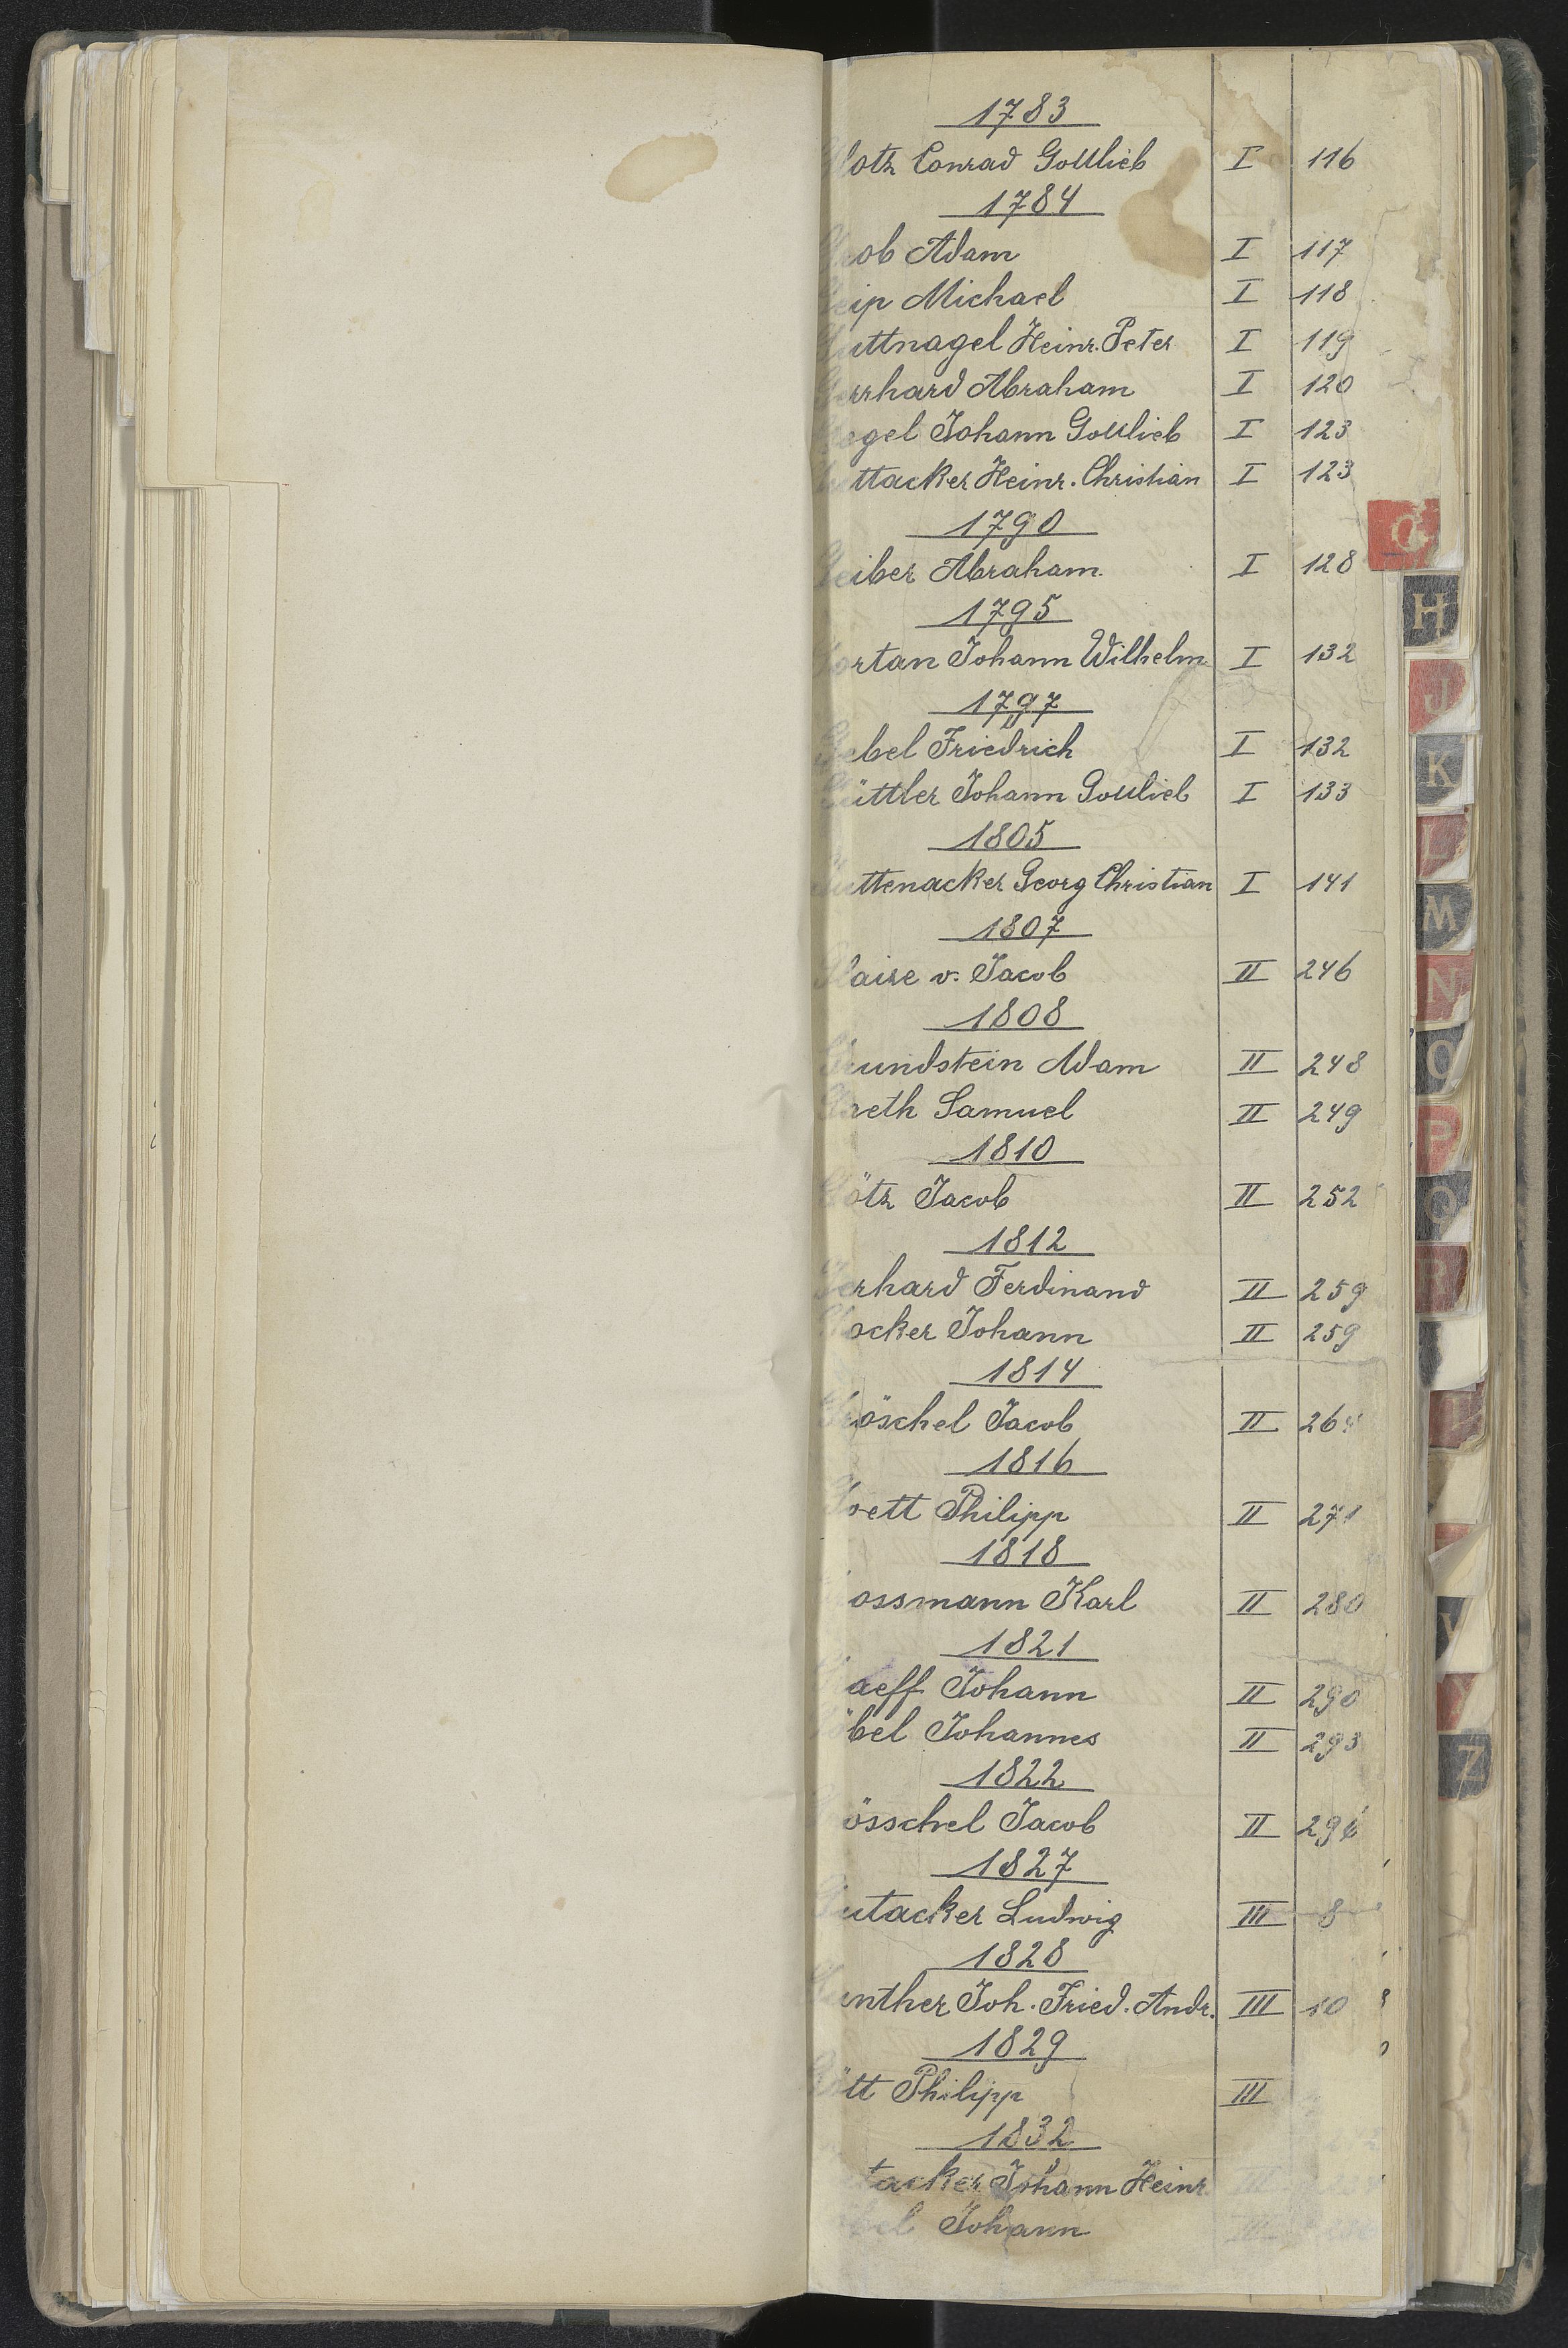 1783
lotz Conrad Gottlieb I 116
1784
rob Adam I 117
Geip Michael I 118
Guttnagel Heinr. Peter I 119
Gerrhard Abraham I 120
Gegel Johann Gottlieb I 123
Guttacker Heinr. Christian I 123
1790
Geiber Abraham I 128
1795
Gortan Johann Wilhelm I 132
1797
Gebel Friedrich I 132
Güttler Johann Gottlieb I 133
1805
Guttenacker Georg Christian I 141
1807
Glaire v. Jacob II 246
1808
Grundstein Adam II 248
Graeth Samuel II 249
1810
Götz Jacob II 252
1812
Gerhard Ferdinand II 259
Glocker Johann II 259
1814
Gröschel Jacob II 264
1816
Goett Philipp II 271
1818
ossmann Karl II 280
1821
aeff Johann II 290
öbel Johannes II 293
1822
össchel Jacob II 296
1827
Gutacker Ludwig III 8
1828
Gunther Joh. Fried. Andr. III 10
1829
Gött Philipp III
1832
tacker Johann Heinr.
bel Johann
G
H
J
K
L
M
N
O
P
Q
R
V
Y
Z